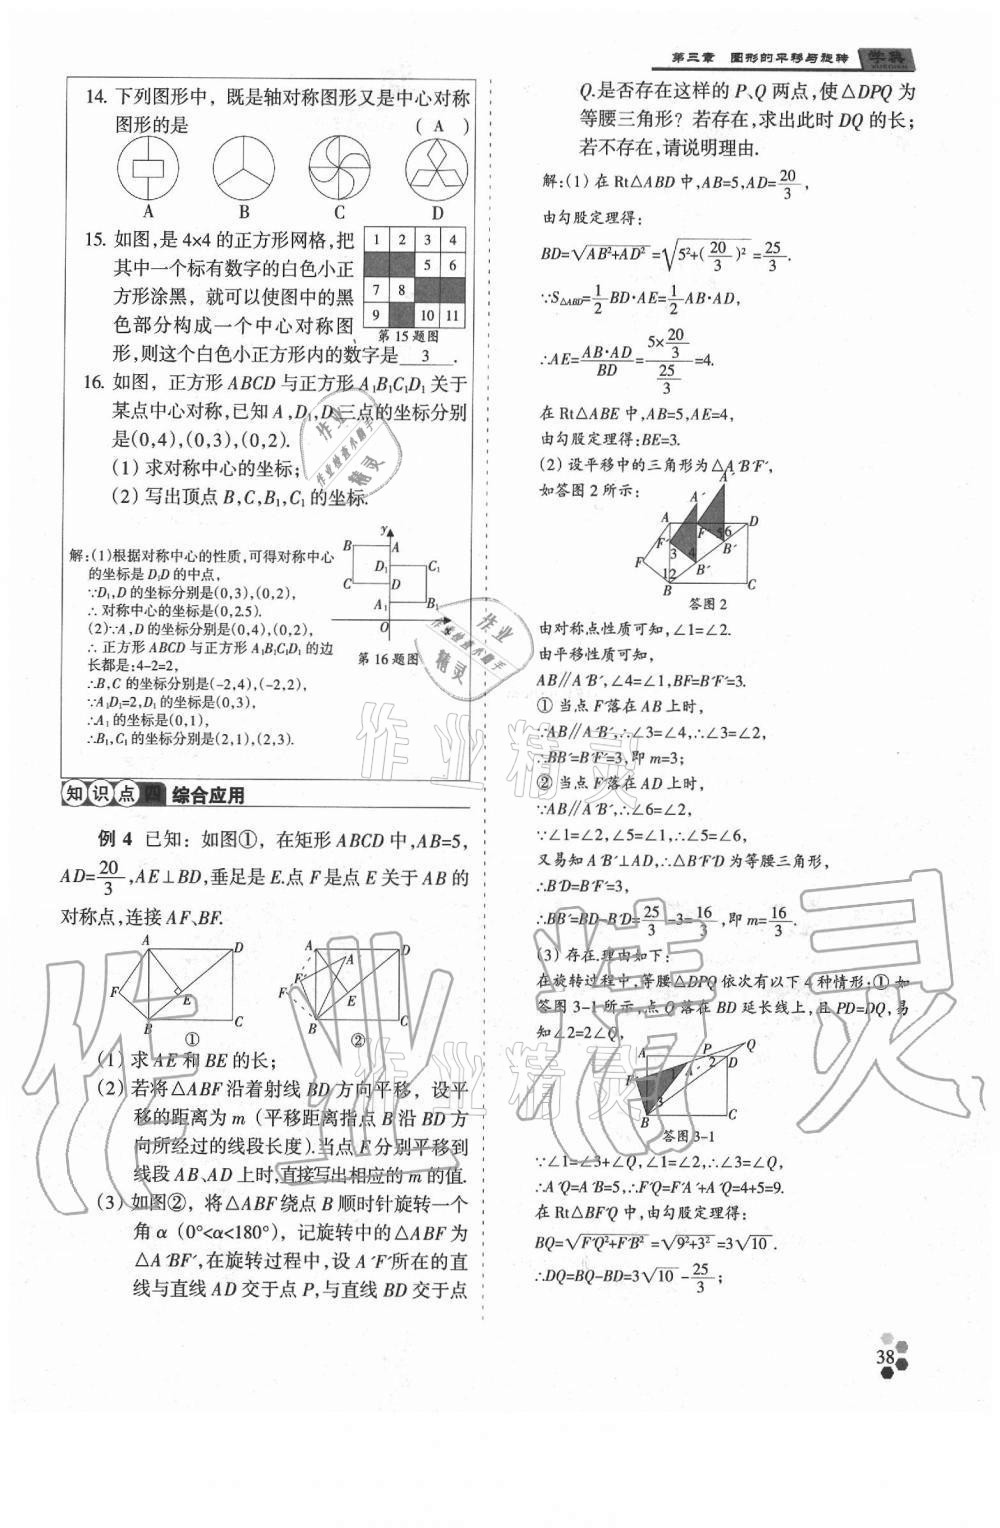 第三章 图形的平移与旋转 学典
14. 下列图形中，既是轴对称图形又是中心对称
图形的是 ( A )
A B C D
15. 如图,是 4×4 的正方形网格,把
其中一个标有数字的白色小正
方形涂黑，就可以使图中的黑
色部分构成一个中心对称图
形,则这个白色小正方形内的数字是 3 .
1 2 3 4
5 6
7 8
9 10 11
第 15 题图
16. 如图，正方形 ABCD 与正方形 A₁B₁C₁D₁ 关于
某点中心对称,已知 A,D₁,D 三点的坐标分别
是(0,4),(0,3),(0,2).
(1) 求对称中心的坐标;
(2) 写出顶点 B,C,B₁,C₁ 的坐标.
解:(1)根据对称中心的性质,可得对称中心
的坐标是 D₁D 的中点,
∵D₁,D 的坐标分别是(0,3),(0,2),
∴ 对称中心的坐标是(0,2.5).
(2)∵A,D 的坐标分别是(0,4),(0,2),
∴ 正方形 ABCD 与正方形 A₁B₁C₁D₁ 的边
长都是:4-2=2,
∴B,C 的坐标分别是(-2,4),(-2,2),
∵A₁D₁=2,D₁ 的坐标是(0,3),
∴A₁ 的坐标是(0,1),
∴B₁,C₁ 的坐标分别是(2,1),(2,3).
y B A D₁ C₁ C D A₁ B₁ O x
第 16 题图
知识点四 综合应用
例 4 已知：如图①，在矩形 ABCD 中,AB=5,
AD=20/3,AE⊥BD,垂足是 E.点 F 是点 E 关于 AB 的
对称点,连接 AF、BF.
A D F E B C
①
A D A´ F´ F E B C
②
(1) 求 AE 和 BE 的长;
(2) 若将△ABF 沿着射线 BD 方向平移，设平
移的距离为 m（平移距离指点 B 沿 BD 方
向所经过的线段长度).当点 F 分别平移到
线段 AB、AD 上时,直接写出相应的 m 的值.
(3) 如图②，将△ABF 绕点 B 顺时针旋转一个
角 α（0°<α<180°），记旋转中的△ABF 为
△A´BF´,在旋转过程中,设 A´F´所在的直
线与直线 AD 交于点 P,与直线 BD 交于点
Q.是否存在这样的 P、Q 两点,使△DPQ 为
等腰三角形？若存在,求出此时 DQ 的长;
若不存在,请说明理由.
解:(1) 在 Rt△ABD 中,AB=5,AD=20/3,
由勾股定理得:
BD=√(AB²+AD²)=√(5²+(20/3)²)=25/3.
∵S△ABD=1/2 BD·AE=1/2 AB·AD,
∴AE=AB·AD/BD=(5×20/3)/(25/3)=4.
在 Rt△ABE 中,AB=5,AE=4,
由勾股定理得:BE=3.
(2) 设平移中的三角形为△A´B´F´,
如答图 2 所示:
答图 2
由对称点性质可知,∠1=∠2.
由平移性质可知,
AB∥A´B´,∠4=∠1,BF=B´F´=3.
① 当点 F´落在 AB 上时,
∵AB∥A´B´,∴∠3=∠4,∴∠3=∠2,
∴BB´=B´F´=3,即 m=3;
② 当点 F´落在 AD 上时,
∵AB∥A´B´,∴∠6=∠2,
∵∠1=∠2,∠5=∠1,∴∠5=∠6,
又易知 A´B´⊥AD,∴△B´F´D 为等腰三角形,
∴B´D=B´F´=3,
∴BB´=BD-B´D=25/3-3=16/3,即 m=16/3.
(3) 存在.理由如下:
在旋转过程中,等腰△DPQ 依次有以下 4 种情形:① 如
答图 3-1 所示,点 Q 落在 BD 延长线上,且 PD=DQ,易
知∠2=2∠Q,
答图 3-1
∵∠1=∠3+∠Q,∠1=∠2,∴∠3=∠Q,
∴A´Q=A´B=5,∴F´Q=F´A´+A´Q=4+5=9.
在 Rt△BF´Q 中,由勾股定理得:
BQ=√(F´Q²+F´B²)=√(9²+3²)=3√10.
∴DQ=BQ-BD=3√10-25/3;
38
作业精灵